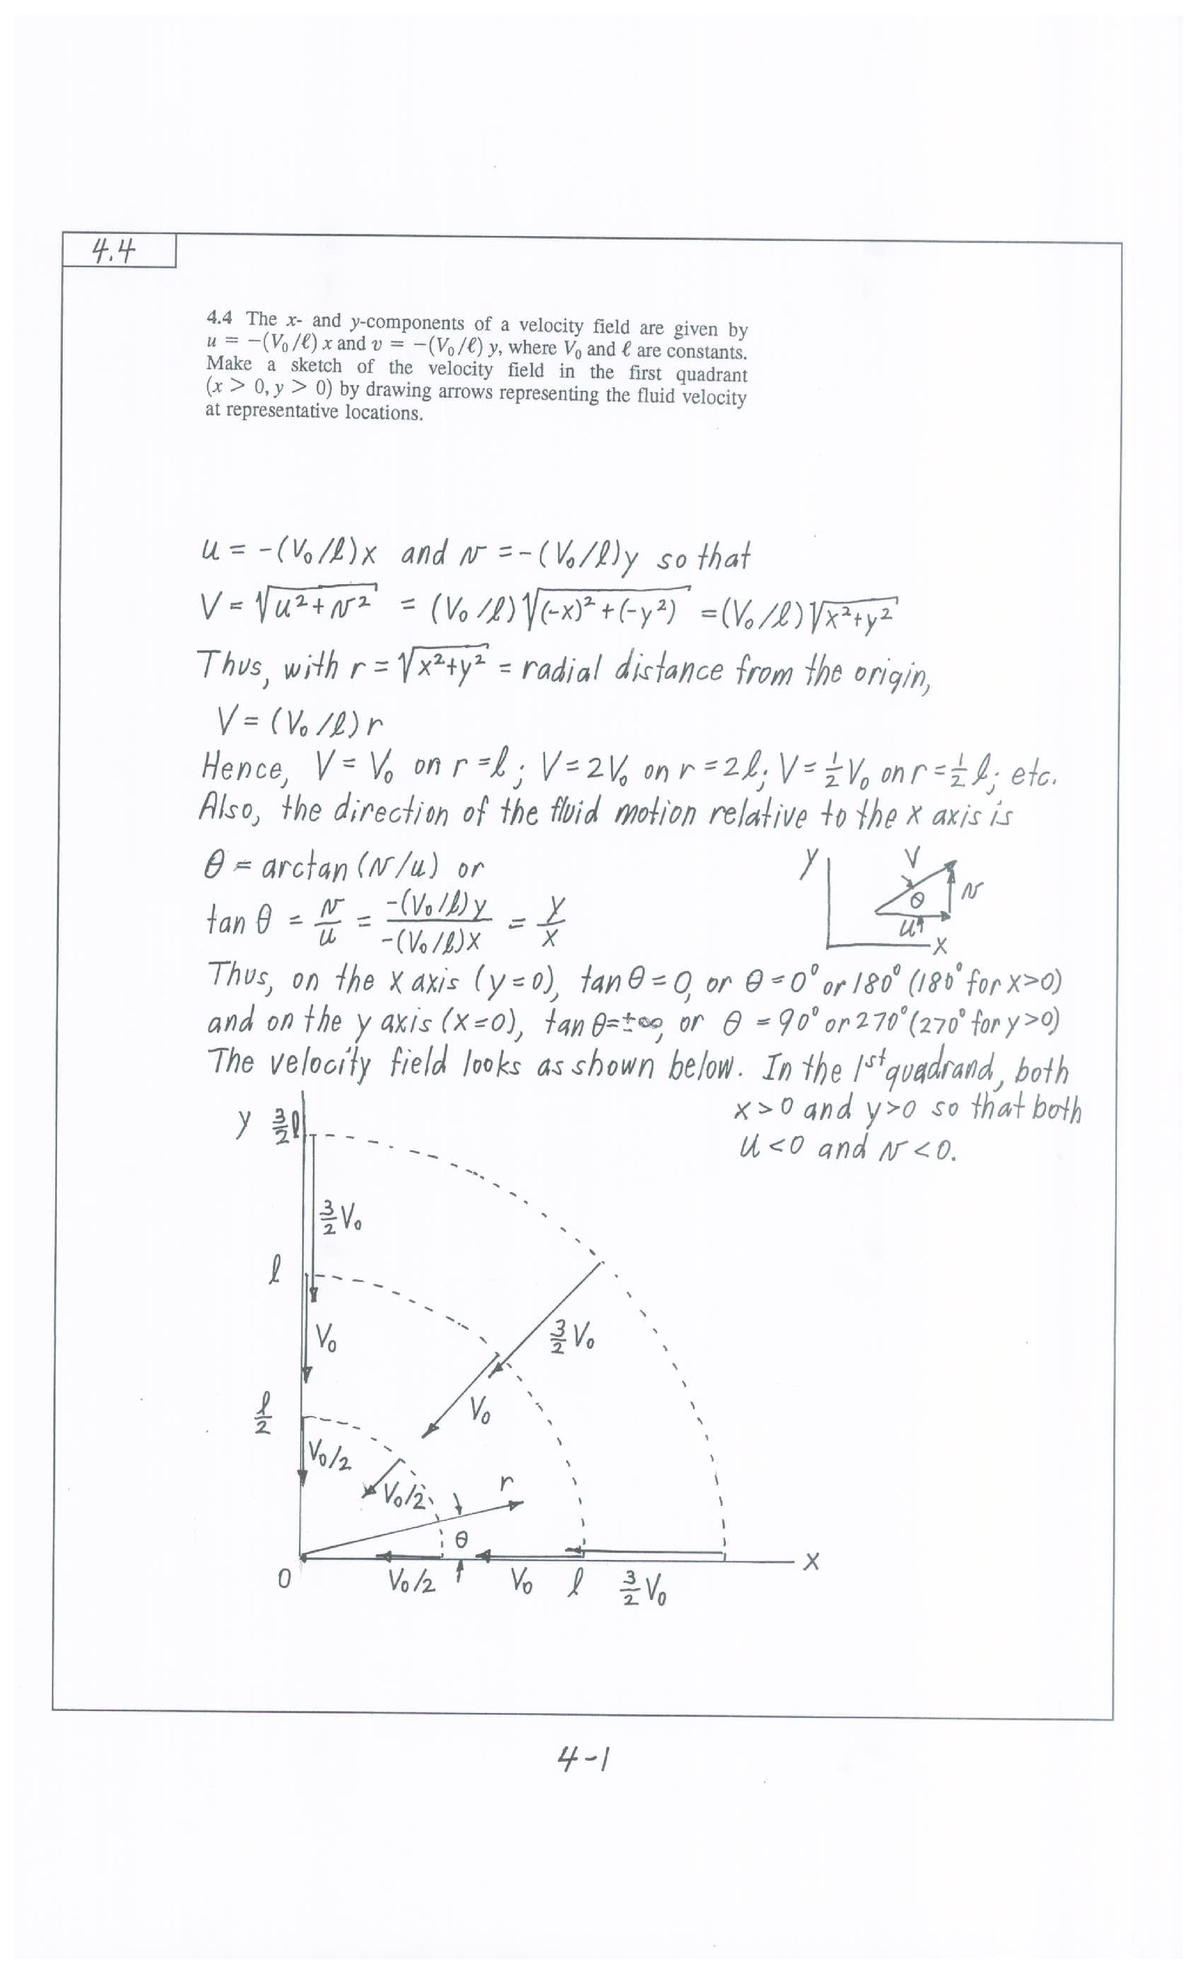 4.4
4.4 The x- and y-components of a velocity field are given by
u = −(V₀/ℓ) x and v = −(V₀/ℓ) y, where V₀ and ℓ are constants.
Make a sketch of the velocity field in the first quadrant
(x > 0, y > 0) by drawing arrows representing the fluid velocity
at representative locations.
u = -(V₀/ℓ)x and v = -(V₀/ℓ)y so that
V = √(u²+v²) = (V₀/ℓ)√((-x)²+(-y²)) = (V₀/ℓ)√(x²+y²)
Thus, with r = √(x²+y²) = radial distance from the origin,
V = (V₀/ℓ)r
Hence, V = V₀ on r = ℓ; V = 2V₀ on r = 2ℓ; V = ½V₀ on r = ½ℓ; etc.
Also, the direction of the fluid motion relative to the x axis is
θ = arctan (v/u) or
y V θ v u x
tan θ = v/u = -(V₀/ℓ)y / -(V₀/ℓ)x = y/x
Thus, on the x axis (y=0), tanθ = 0, or θ = 0° or 180° (180° for x>0)
and on the y axis (x=0), tan θ=±∞, or θ = 90° or 270° (270° for y>0)
The velocity field looks as shown below. In the 1st quadrand, both
x>0 and y>0 so that both
u<0 and v<0.
y 3/2 ℓ
3/2 V₀
ℓ
V₀ 3/2 V₀
ℓ/2 V₀
V₀/2 V₀/2 r
θ
x
0 V₀/2 V₀ ℓ 3/2 V₀
4-1